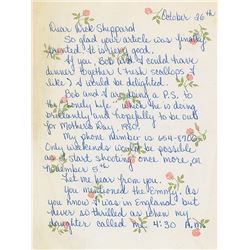 October 26th
Dear Dick Sheppard
So glad your article was finally
printed. It is very good.
If you, Bob and I could have
dinner together & fresh scallops if
like I would be delighted.
Bob and I are doing a P.S. to
the lonely life which he is doing
brilliantly and hopefully to be out
for Mother's Day, 1980.
My phone number is 654-
Only weekends would be possible
as I start shooting once more, on
November 5th
Let me hear from you.
You mentioned the Emmy. As
you know I was in England but
never so thrilled as when my
daughter called me 4:30 A.M